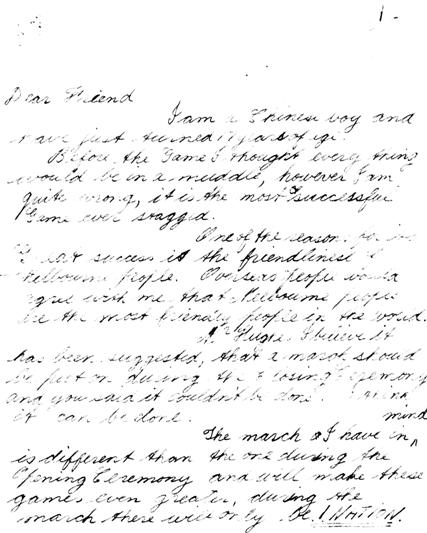 1 -
Dear Friend
I am a Chinese boy and
have just turned 17 years of age.
Before the Game I thought every thing
would be in a muddle, however I am
quite wrong, it is the most successful
Game ever staged.
One of the reasons for its
great success is the friendliness
Melbourne people. Overseas people would
agree with me, that Melbourne people
are the most friendly people in the world.
Mr Hughes I believe it
has been suggested, that a march should
be put on during the Closing Ceremony
and you said it couldn't be done. I think
it can be done.
The march I have in mind
is different than the one during the
Opening Ceremony and will make these
games even greater, during the
march there will only be 1 NATION.